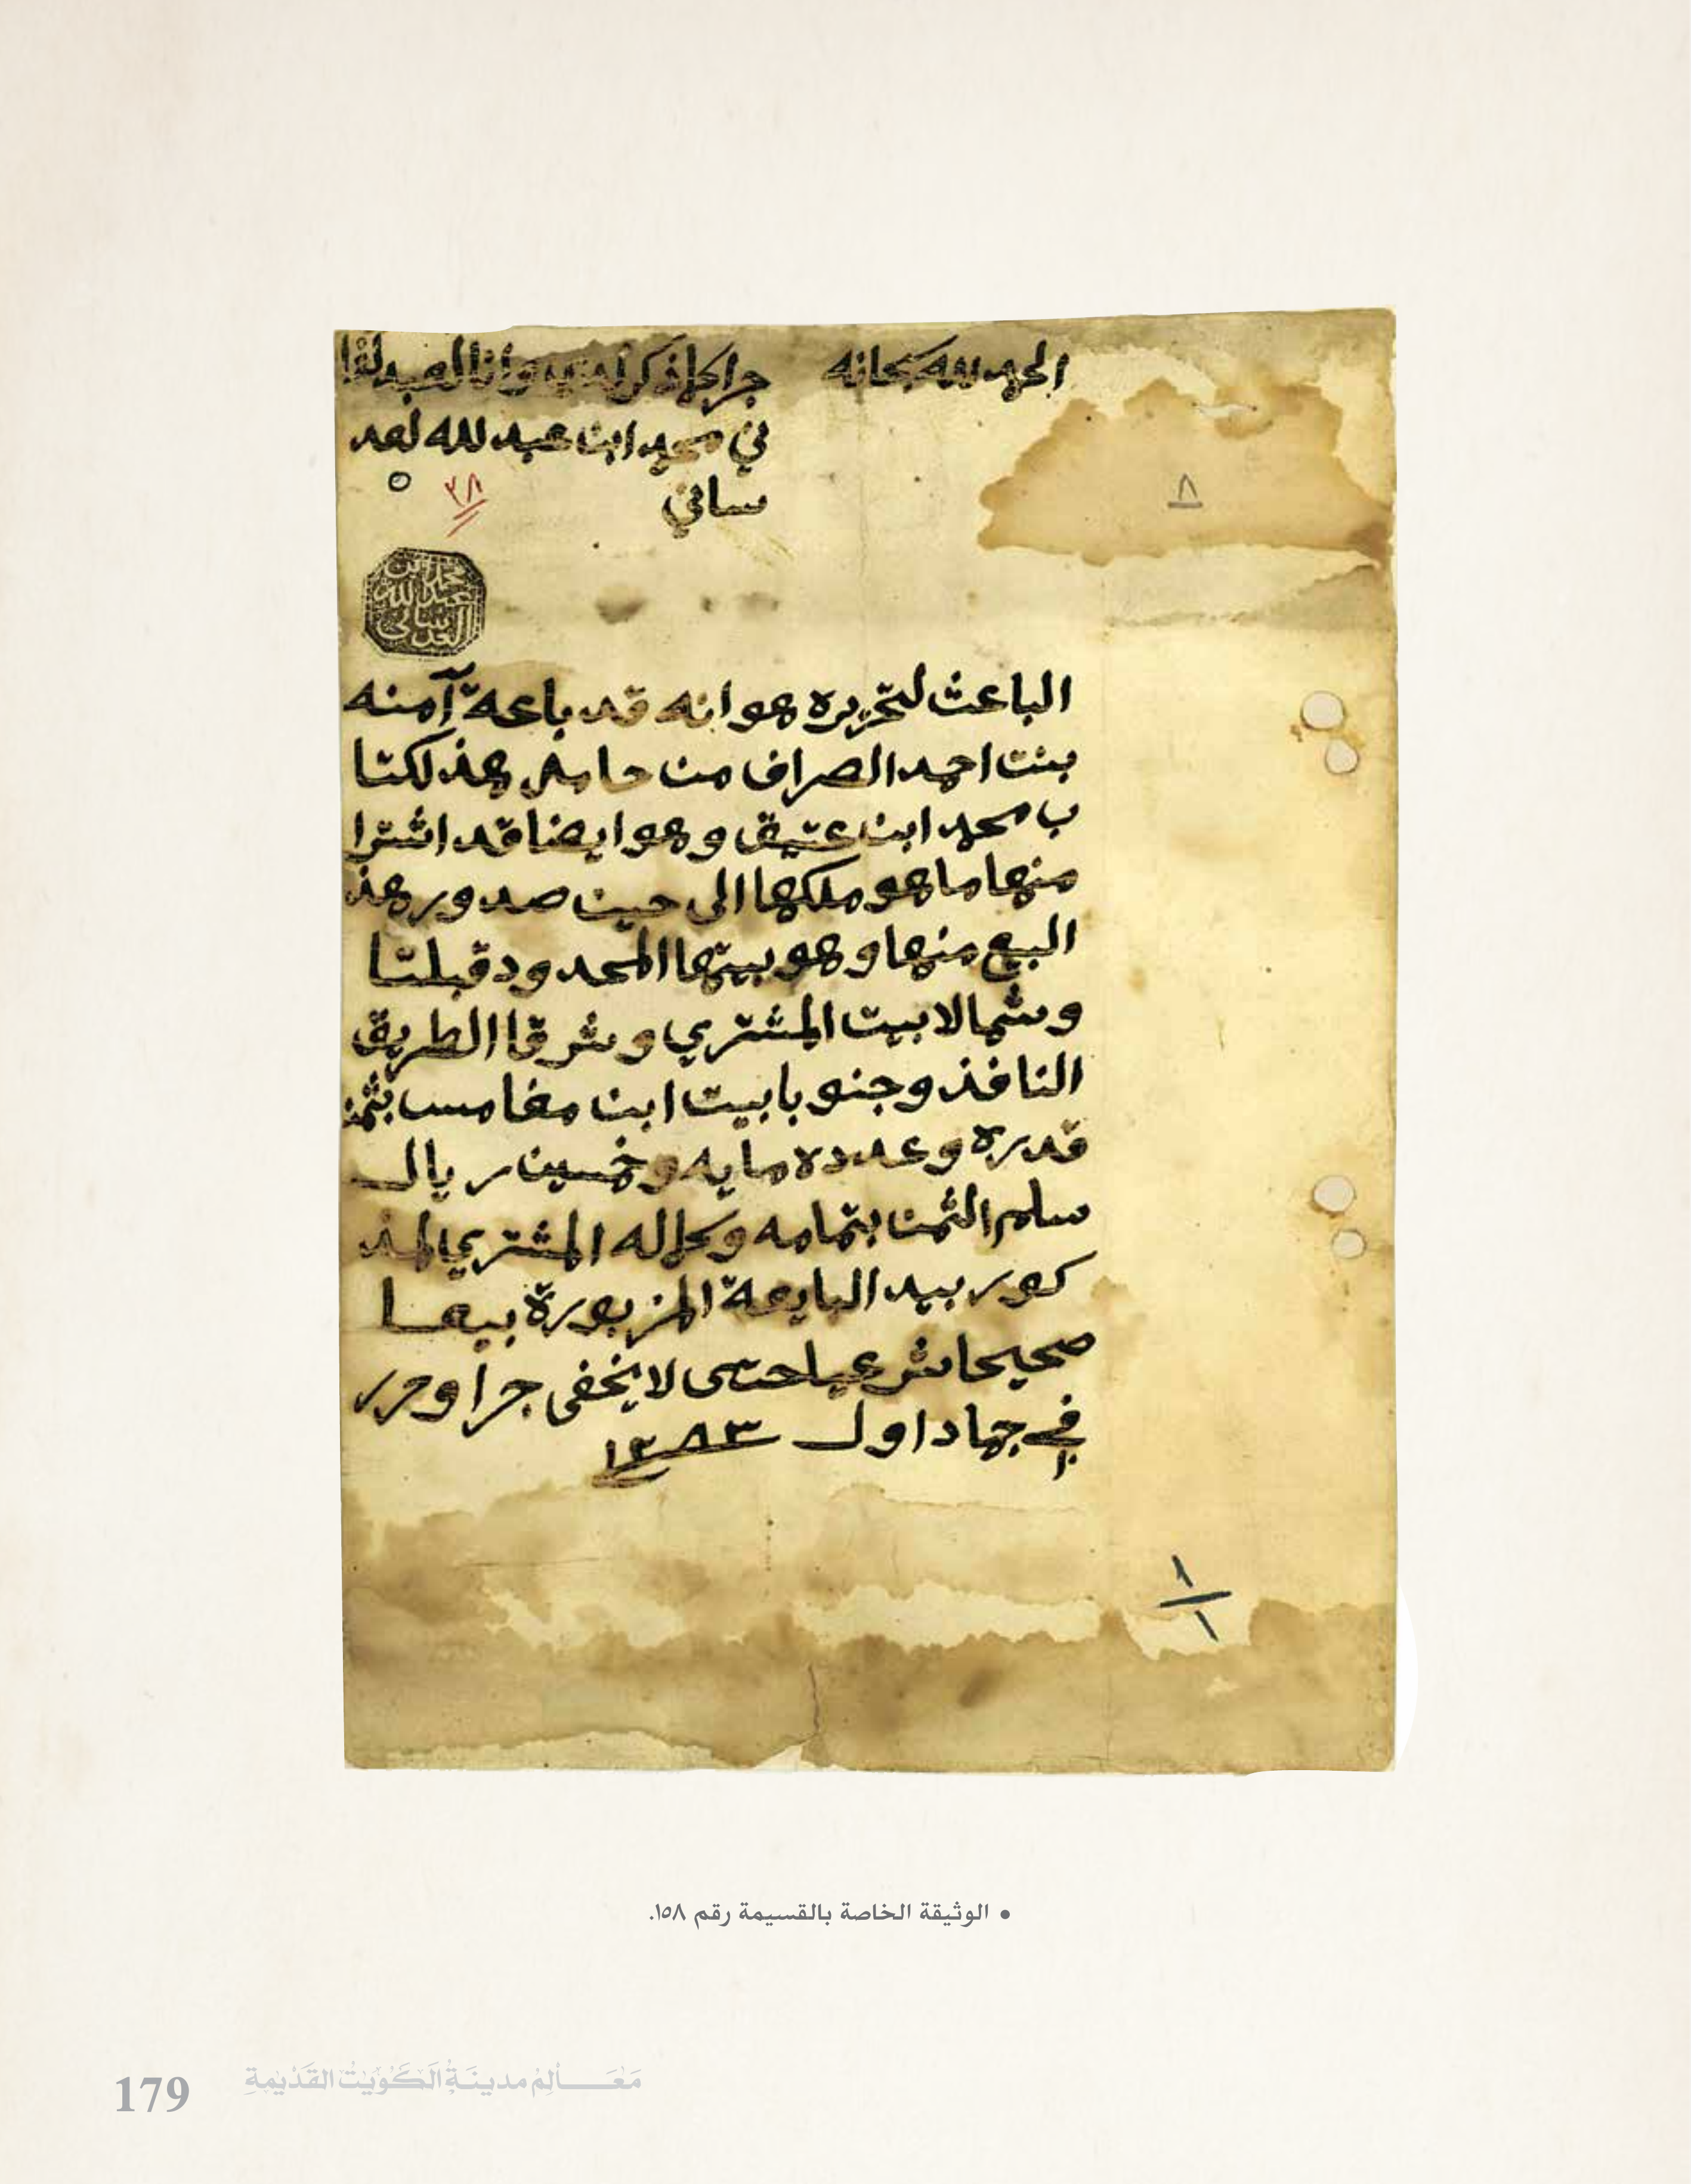 الحمد لله سبحانه
جرا كلما ذكر لديه وانا العبد لفا
ني محمد ابن عبد لله لعد
ساني
٢٨
٨
محمد ابن
عبد الله
العدساني
الباعث لتحريره هو انه قد باعة آمنه
بنت احمد الصراف من حامل هذلكتا
ب محمد ابن عتيق وهو ايضا قد اشترا
منها ما هو ملكها الى حين صدور هذ
البيع منها وهو بيتها المحدود قبلتا
وشمالا بيت المشتري وشرقا الطريق
النافذ وجنوبا بيت ابن مغامس بثمن
قدره وعدده مايه وخمسين ريال
سلم الثمن بتمامه وكماله المشتري المذ
كور بيد البايعة المزبورة بيعا
صحيحا شرعيا حتى لا يخفى جرا وحرر
في جماد اول ١٢٨٣
١
١
• الوثيقة الخاصة بالقسيمة رقم ١٥٨.
179 معالم مدينة الكويت القديمة